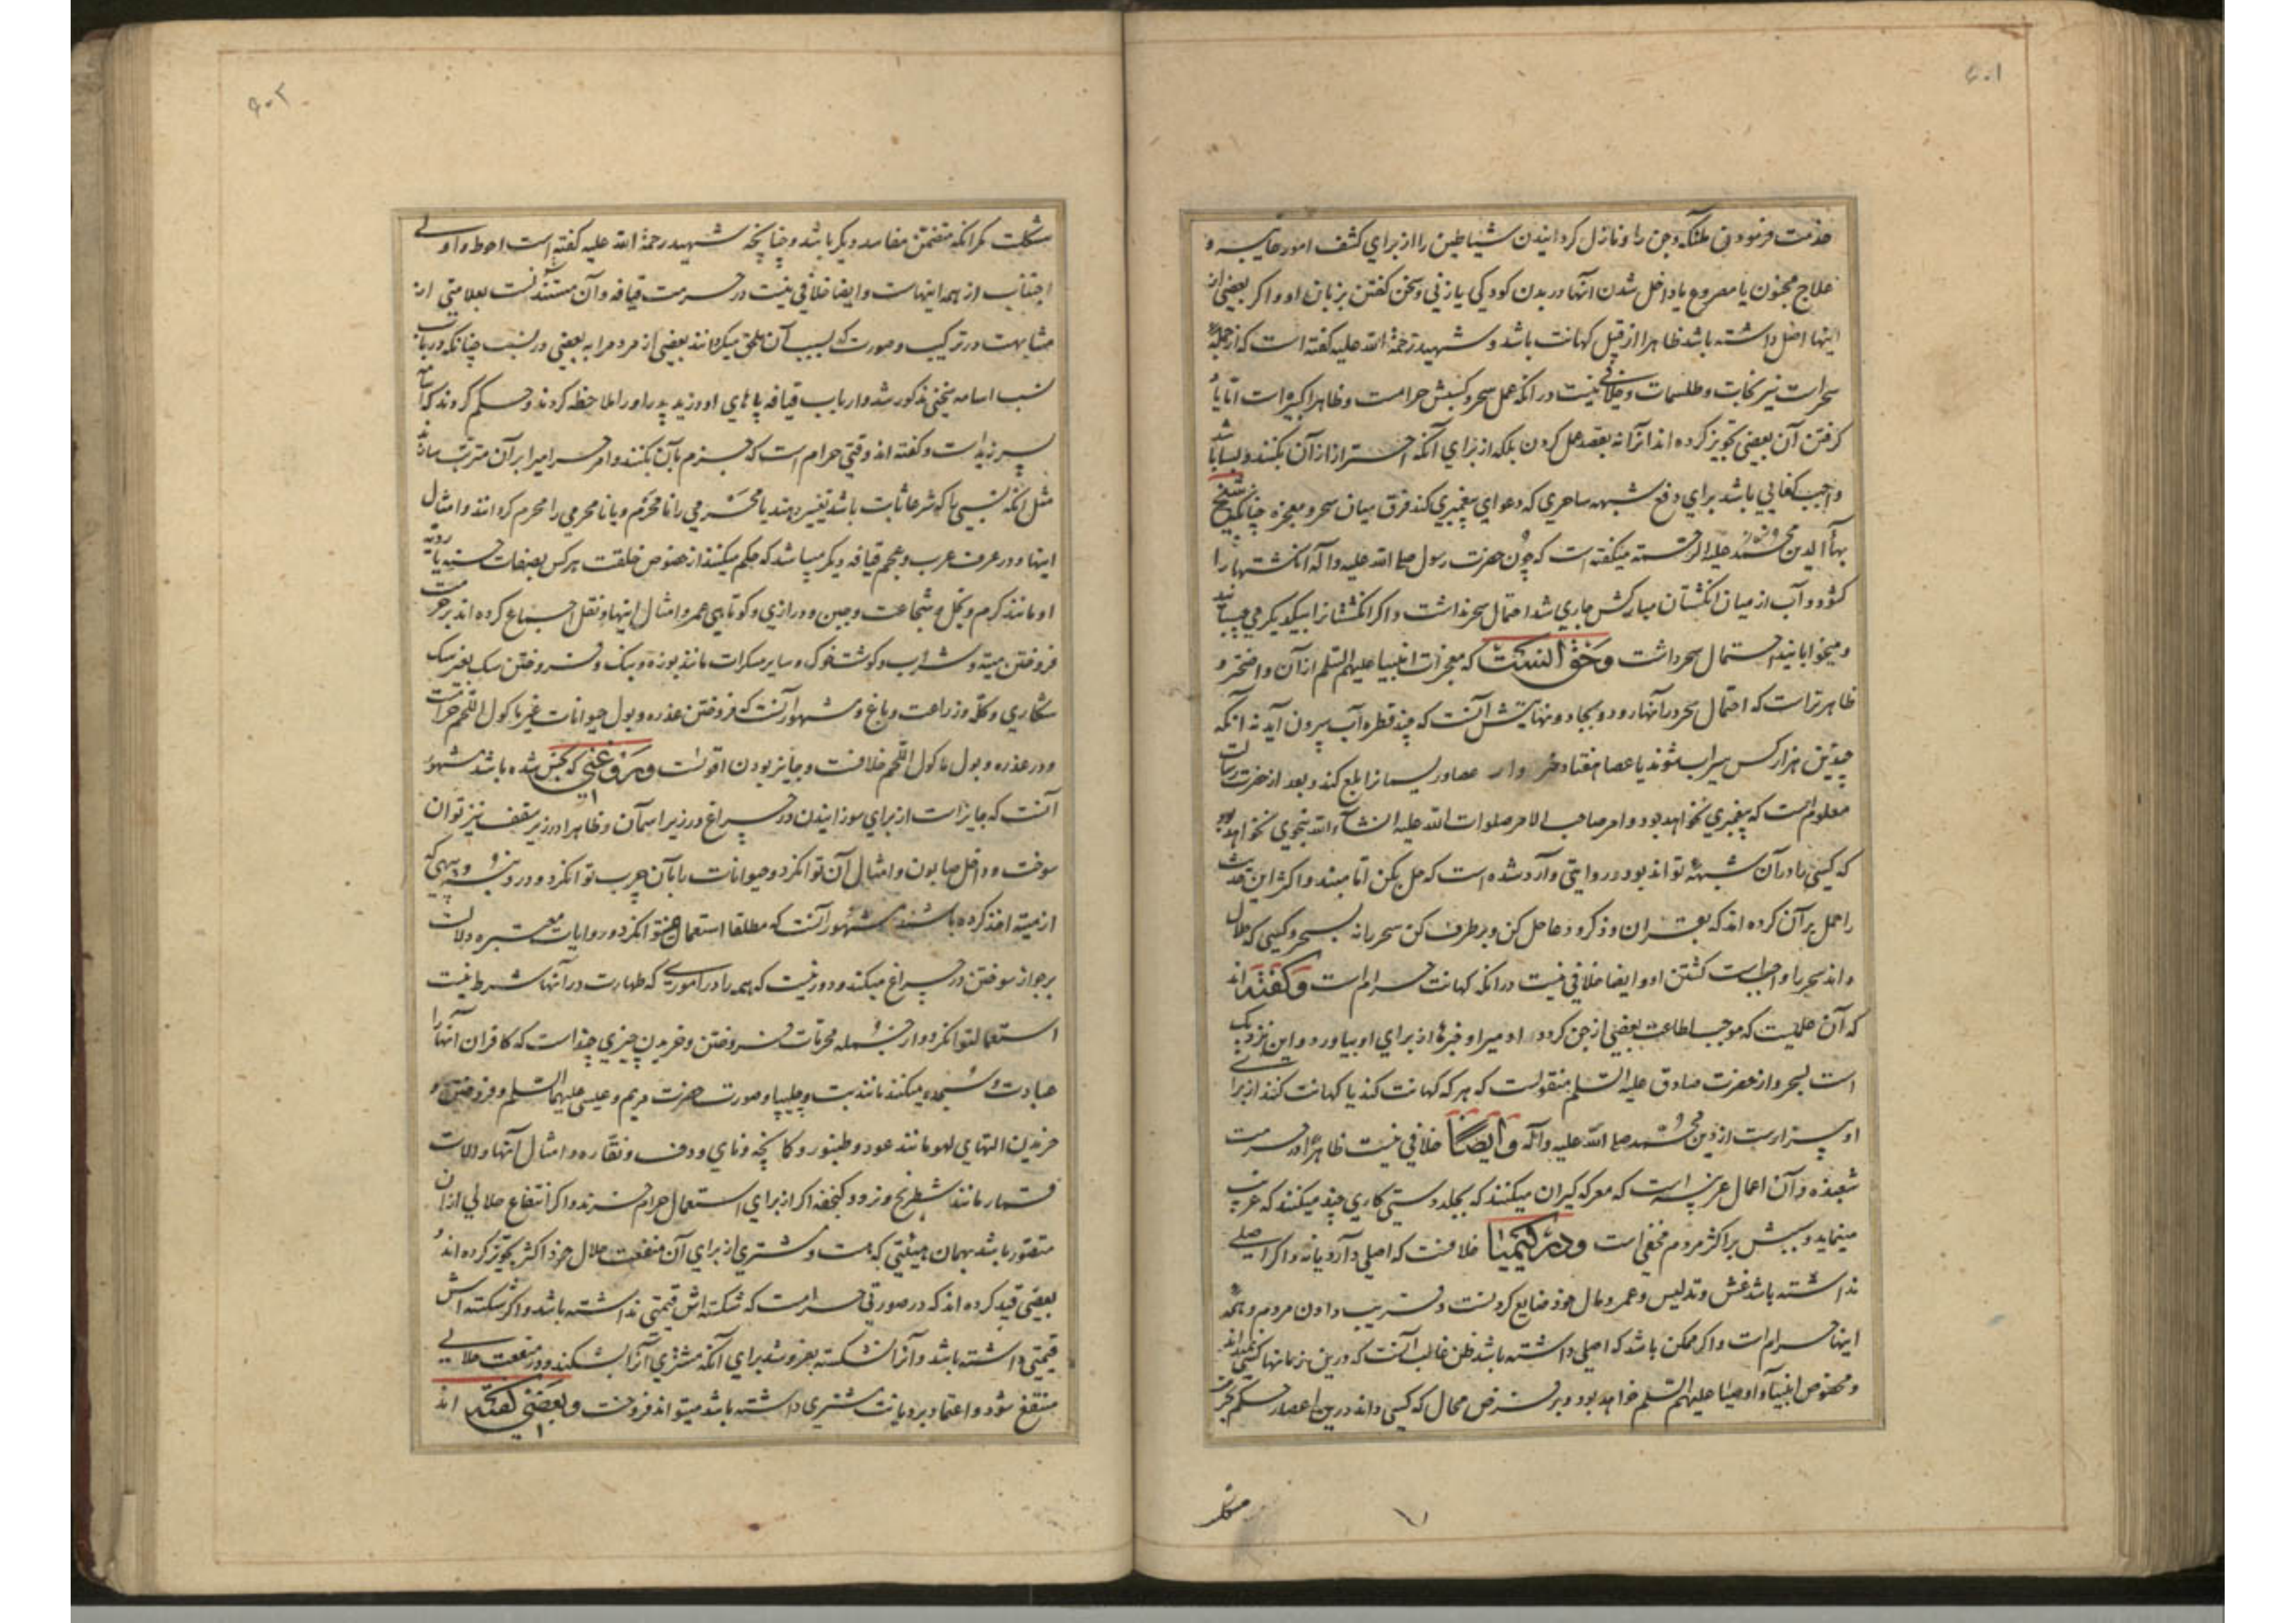 ۶۰۱
خدمت فرمودن ملئکه و جن را و نازل کردانیدن شیاطین را از برای کشف امور غایبه و
علاج مجنون یا مصروع یا داخل شدن آنها در بدن کودکی یا زنی و سخن کفتن بزبان او و اکر بعضی از
اینها اصل داشته باشد ظاهرا از قبیل کهانت باشد و شهید رحمة الله علیه کفته است که از جمله
سحر است نیرنجات و طلسمات و خلافی نیست در آنکه عمل سحر و کسبش حرامست و ظاهرا کبیره است اما یاد
کرفتن آن بعضی تجویز کرده اند از آن نه بقصد عمل کردن بلکه از برای آنکه احتراز از آن بکنند و بسا باشد
واجب کفایی باشد برای دفع شبهه ساحری که دعوای پیغمبری کند فرق میان سحر و معجزه چنانکه شیخ
بهاء الدین محمد علیه الرحمه میکفته است که چون حضرت رسول صلی الله علیه و آله انکشتها را
کشود و آب از میان انکشتان مبارکش جاری شد احتمال سحر نداشت و اکر انکشتانرا بیکدیکر می چسبانید
و میخوابانید احتمال سحر داشت و حق آنست که معجزات انبیا علیهم السلم از آن واضحتر و
ظاهرتر است که احتمال سحر در آنها رود و بجادو نهایتش آنست که چند قطره آب بیرون آید نه آنکه
چندین هزار کس سیراب شوند یا عصا هفتاد خروار عصا و ریسمانرا بلع کند و بعد از حضرت رسالت
معلوم است که پیغمبری نخواهد بود و امر صاحب الامر صلوات الله علیه انشاء الله بنحوی نخواهد بود
که کسی را در آن شبهه تواند بود و در روایتی وارد شده است که حل بکن اما مبند و اکثر این حدیث
را حمل بر آن کرده اند که بقران و ذکر و دعا حل کن و برطرف کن سحر را نه بسحر و کسی که حلال
داند سحر را واجبست کشتن او و ایضا خلافی نیست در آنکه کهانت حرام است و کفته اند
که آن عملیست که موجب اطاعت بعضی از جن کردد او میرا و خبرها از برای او بیاورد و این نزدیک
است بسحر و از حضرت صادق علیه السلم منقولست که هر که کهانت کند یا کهانت کنند از برای
او بیزارست از دین محمد صلی الله علیه و آله و ایضا خلافی نیست ظاهرا در حرمت
شعبده و آن اعمال عزیبه است که معرکه کیران میکنند که بجلد دستی کاری چند میکنند که غریب
مینماید و سببش بر اکثر مردم مخفی است و در کیمیا خلافست که اصلی دارد یا نه و اکر اصلی
نداشته باشد غش و تدلیس و عمر و مال خود ضایع کردنست و فریب دادن مردم و همه
اینها حرام است و اکر ممکن باشد که اصلی داشته باشد ظن غالب آنست که درین زمانها کسی نمیداند
و مخصوص انبیا و اوصیا علیهم السلم خواهد بود و بر فرض محال که کسی داند درین اعصار حکم بحرمت
مشکلست
۶۰۲
مشکلست مکر آنکه متضمن مفاسد دیکر باشد و چنانچه شهید رحمة الله علیه کفته است احوط و اولی
اجتناب از همه اینهاست و ایضا خلافی نیست در حرمت قیافه و آن مستند آنست بعلامتی از
مشابهت در ترکیب و صورت که بسبب آن ملحق میکردانند بعضی از مردم را به بعضی در نسب چنانکه در باب
نسب اسامه بنحوی مذکور شد و ارباب قیافه پاهای او و زید پدر او را ملاحظه کردند و حکم کردند که اسامه
پسر زید است و کفته اند وقتی حرام است که جزم بآن بکنند و امر حرامیرا بر آن مترتب سازند
مثل آنکه نسبی را که شرعا ثابت باشد تغییر دهند یا محرمی را نامحرم و یا نامحرمی را محرم کردانند و امثال
اینها و در عرف عرب و عجم قیافه دیکر میباشد که حکم میکنند از خصوص خلقت هر کس بصفات حسنه یا ردیه
او مانند کرم و بخل و شجاعت و جبن و درازی و کوتاهی عمر و امثال اینها و نقل اجماع کرده اند بر حرمت
فروختن میته و شراب و کوشت خوک و سایر مسکرات مانند بوزه و بنک و فروختن سک بغیر سک
شکاری و کله و زراعت و باغ و مشهور آنست که فروختن عذره و بول حیوانات غیر ماکول اللحم حرامست
و در عذره و بول ماکول اللحم خلافست و جایز بودن اقویست و روغنی که نجس شده باشد مشهور
آنست که جایز است از برای سوزانیدن در چراغ در زیر آسمان و ظاهرا در زیر سقف نیز توان
سوخت و داخل صابون و امثال آن توانکرد و حیوانات را بآن چرب توانکرد و در دنبه و پیهی که
از میته اخذ کرده باشند مشهور آنست که مطلقا استعمال نمیتوانکرد و روایات معتبره دلالت
بر جواز سوختن در چراغ میکند و دور نیست که همه را در اموری که طهارت در آنها شرط نیست
استعمال توانکرد و از جمله محرمات فروختن و خریدن چیزی چند است که کافران آنها را
عبادت و سجده میکنند مانند بت و چلیپا و صورت حضرت مریم و عیسی علیهما السلم و فروختن و
خریدن التهای لهو مانند عود و طنبور و کمانچه و نای و دف و نقاره و امثال آنها و آلات
قمار مانند شطرنج و نرد و کنجفه اکر از برای استعمال حرام خرند و اکر انتفاع حلالی از آن
متصور باشد بهمان هیئتی که هست و مشتری از برای آن منفعت حلال خرد اکثر تجویز کرده اند و
بعضی قید کرده اند که در صورتی حرامست که شکسته اش قیمتی نداشته باشد و اکر شکسته اش
قیمتی داشته باشد و آنرا نشکسته بفروشد برای آنکه مشتری آنرا بشکند و در منفعت حلالی
منتفع شود و اعتماد بر دیانت مشتری داشته باشد میتواند فروخت و بعضی کفته اند